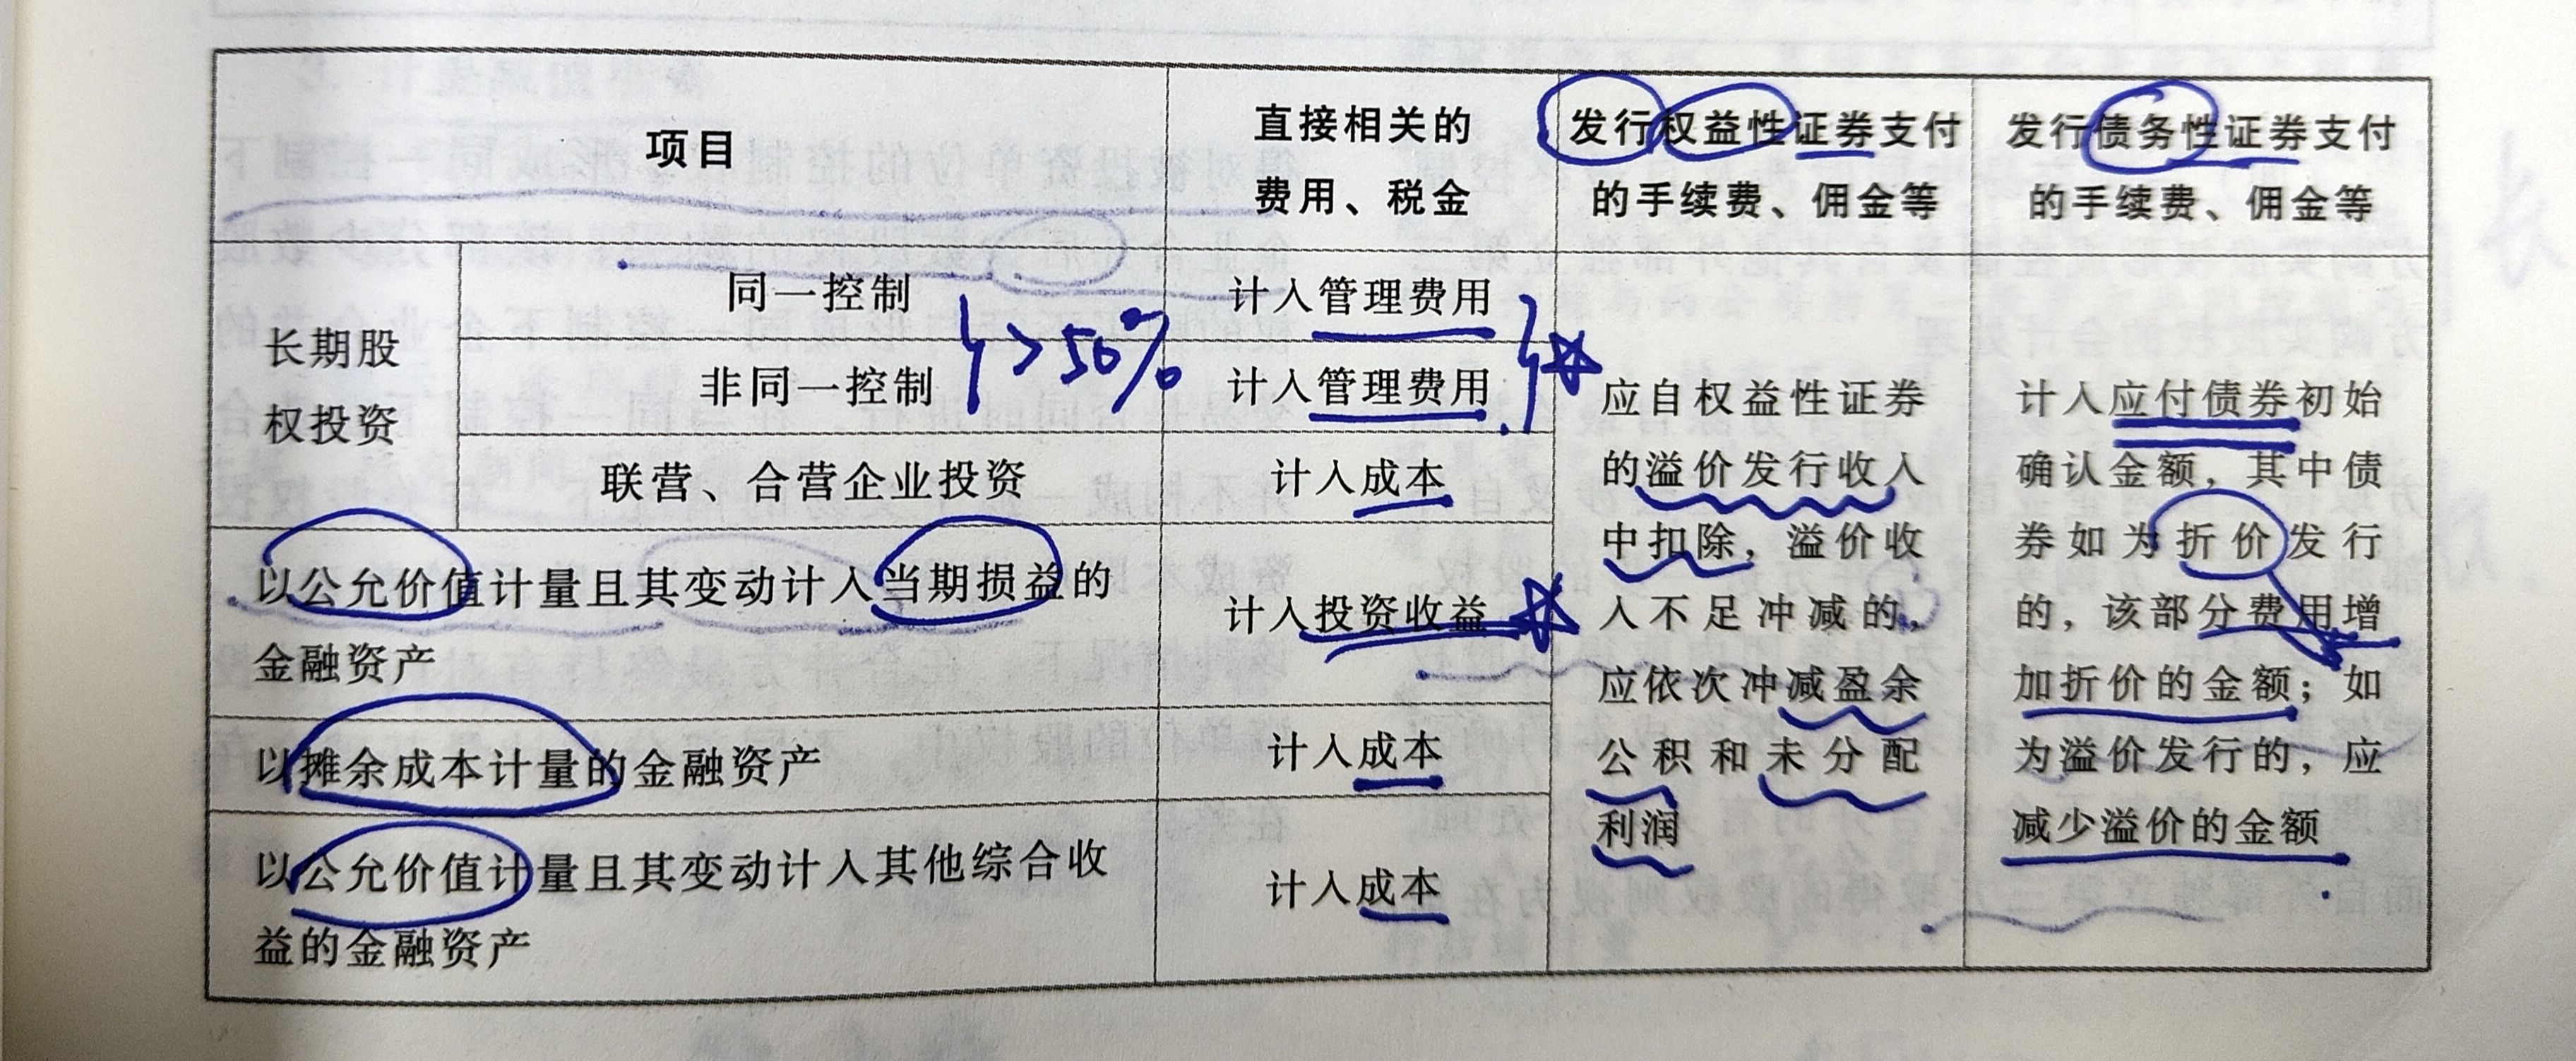 项目
直接相关的
费用、税金
发行权益性证券支付
的手续费、佣金等
发行债务性证券支付
的手续费、佣金等
长期股
权投资
同一控制
计入管理费用
非同一控制
计入管理费用
>50%
联营、合营企业投资
计入成本
以公允价值计量且其变动计入当期损益的
金融资产
计入投资收益
以摊余成本计量的金融资产
计入成本
以公允价值计量且其变动计入其他综合收
益的金融资产
计入成本
应自权益性证券
的溢价发行收入
中扣除，溢价收
入不足冲减的，
应依次冲减盈余
公积和未分配
利润
计入应付债券初始
确认金额，其中债
券如为折价发行
的，该部分费用增
加折价的金额；如
为溢价发行的，应
减少溢价的金额